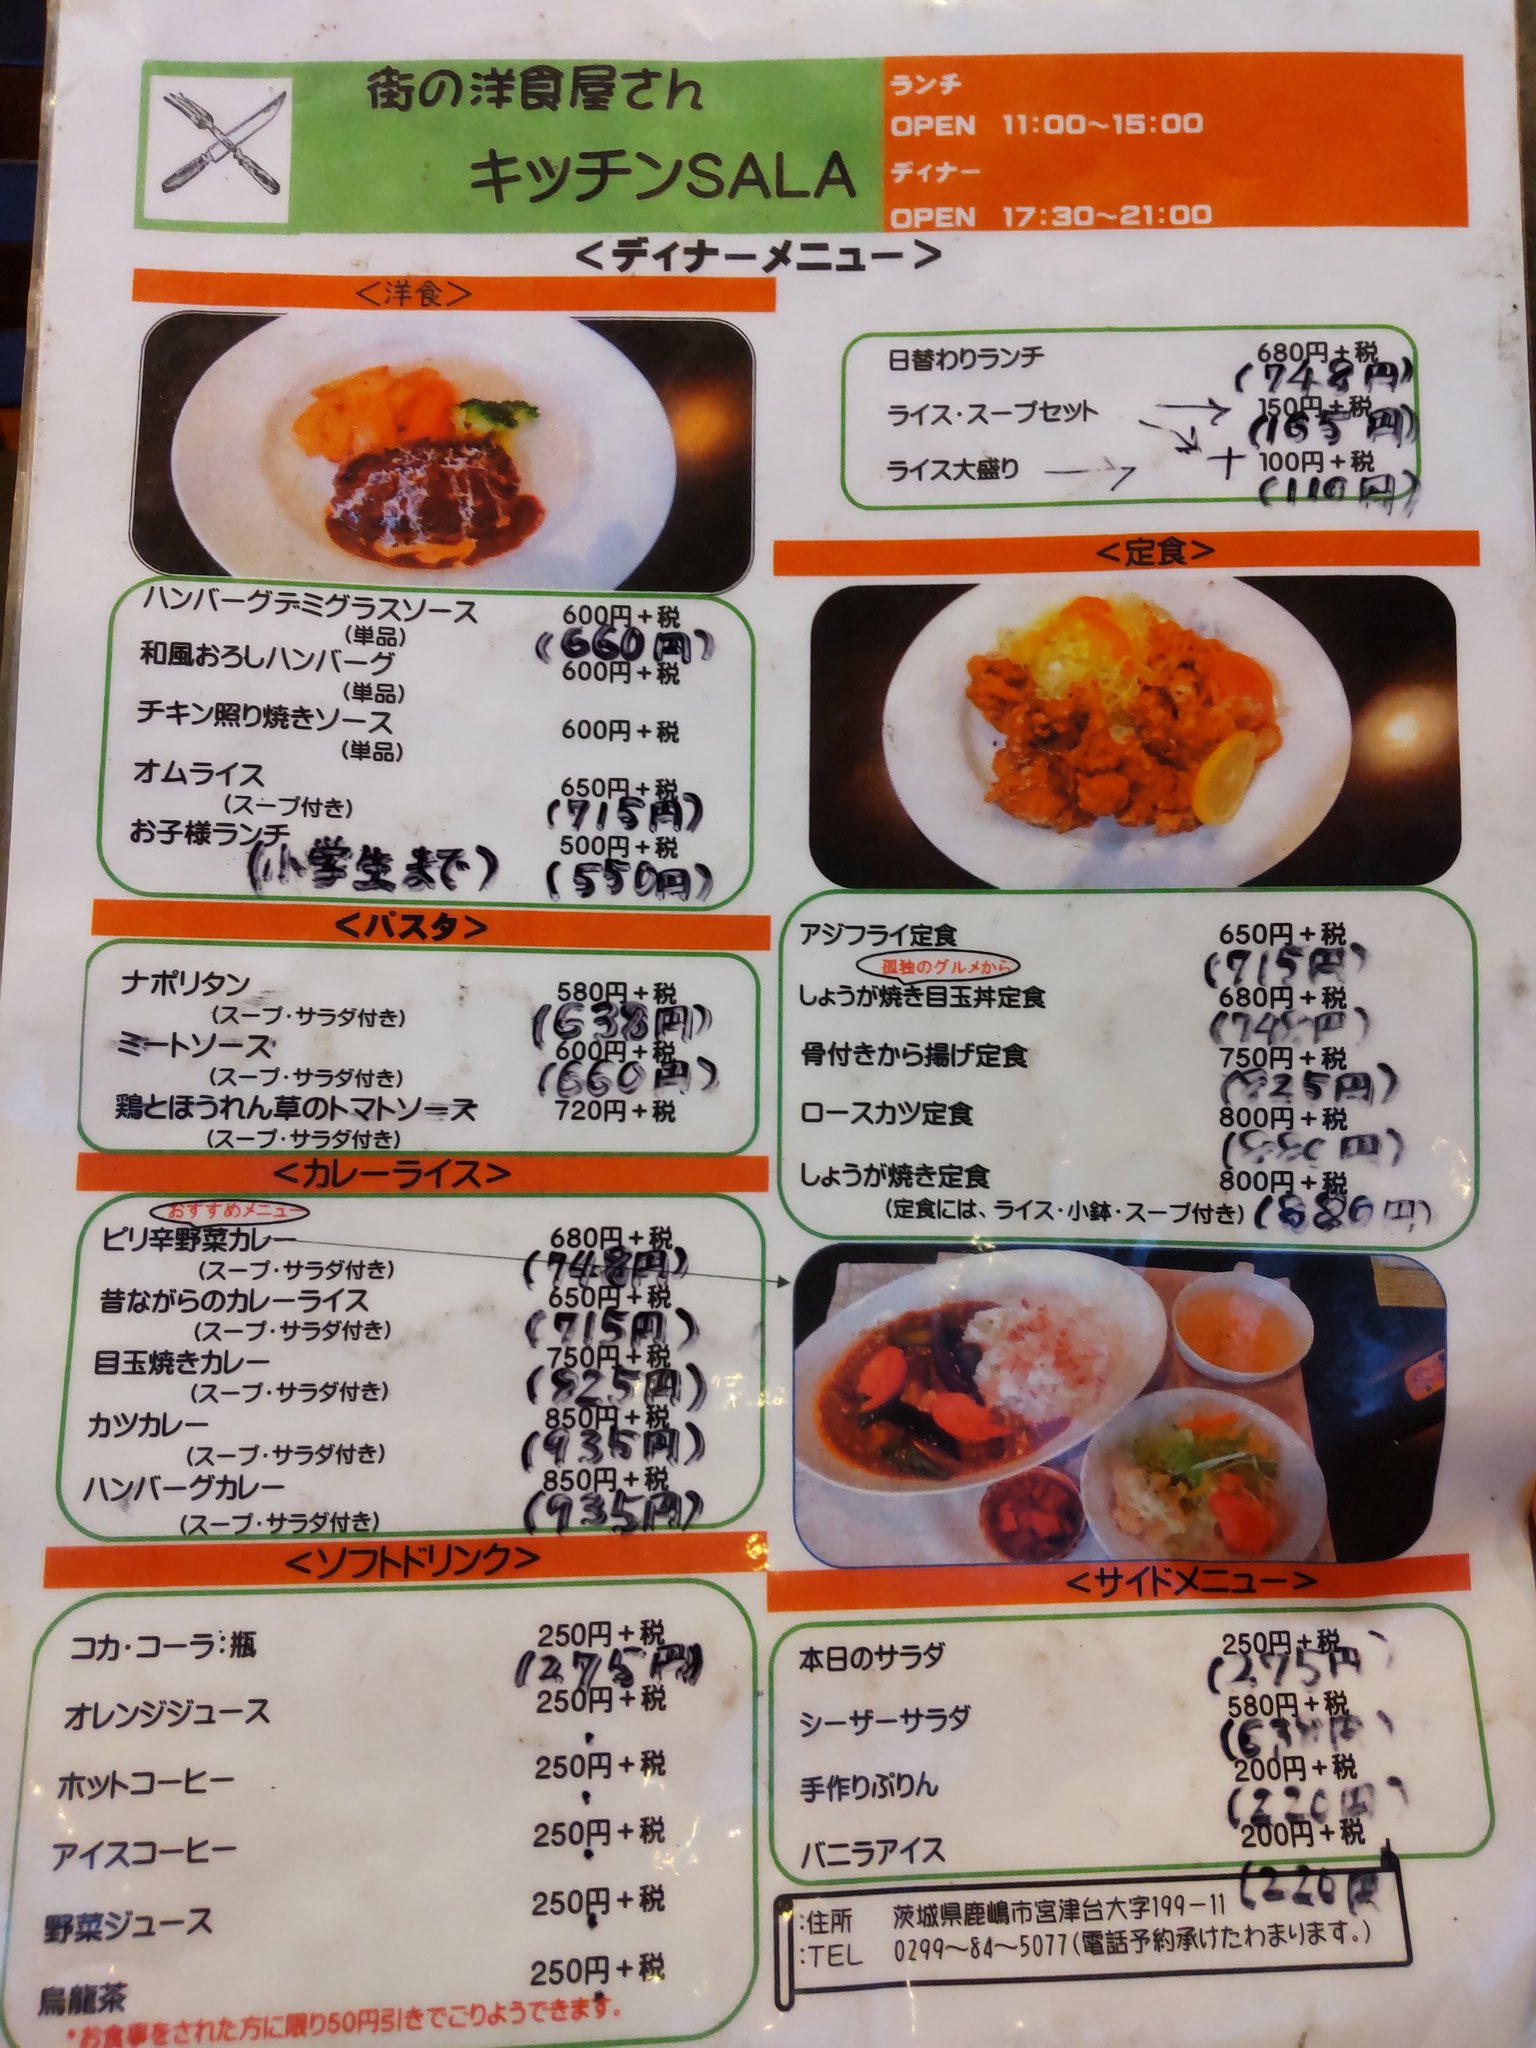 街の洋食屋さん
キッチンSALA
ランチ
OPEN 11:00～15:00
ディナー
OPEN 17:30～21:00
＜ディナーメニュー＞
＜洋食＞
ハンバーグデミグラスソース 600円＋税
(単品) (660円)
和風おろしハンバーグ 600円＋税
(単品)
チキン照り焼きソース 600円＋税
(単品)
オムライス 650円＋税
(スープ付き) (715円)
お子様ランチ 500円＋税
(小学生まで) (550円)
＜パスタ＞
ナポリタン 580円＋税
(スープ・サラダ付き) (638円)
ミートソース 600円＋税
(スープ・サラダ付き) (660円)
鶏とほうれん草のトマトソース 720円＋税
(スープ・サラダ付き)
＜カレーライス＞
おすすめメニュー
ピリ辛野菜カレー 680円＋税
(スープ・サラダ付き) (748円)
昔ながらのカレーライス 650円＋税
(スープ・サラダ付き) (715円)
目玉焼きカレー 750円＋税
(スープ・サラダ付き) (825円)
カツカレー 850円＋税
(スープ・サラダ付き) (935円)
ハンバーグカレー 850円＋税
(スープ・サラダ付き) (935円)
＜ソフトドリンク＞
コカ・コーラ：瓶 250円＋税
(275円)
オレンジジュース 250円＋税
ホットコーヒー 250円＋税
アイスコーヒー 250円＋税
野菜ジュース 250円＋税
烏龍茶 250円＋税
*お食事をされた方に限り50円引きでごりようできます。
日替わりランチ 680円＋税
(748円)
ライス・スープセット 150円＋税
(165円)
ライス大盛り ＋ 100円＋税
(110円)
＜定食＞
アジフライ定食 650円＋税
孤独のグルメから (715円)
しょうが焼き目玉丼定食 680円＋税
(748円)
骨付きから揚げ定食 750円＋税
(825円)
ロースカツ定食 800円＋税
(880円)
しょうが焼き定食 800円＋税
(定食には、ライス・小鉢・スープ付き) (880円)
＜サイドメニュー＞
本日のサラダ 250円＋税
(275円)
シーザーサラダ 580円＋税
(638円)
手作りぷりん 200円＋税
(220円)
バニラアイス 200円＋税
(220円
:住所 茨城県鹿嶋市宮津台大字199－11
:TEL 0299～84～5077(電話予約承けたわまります。)